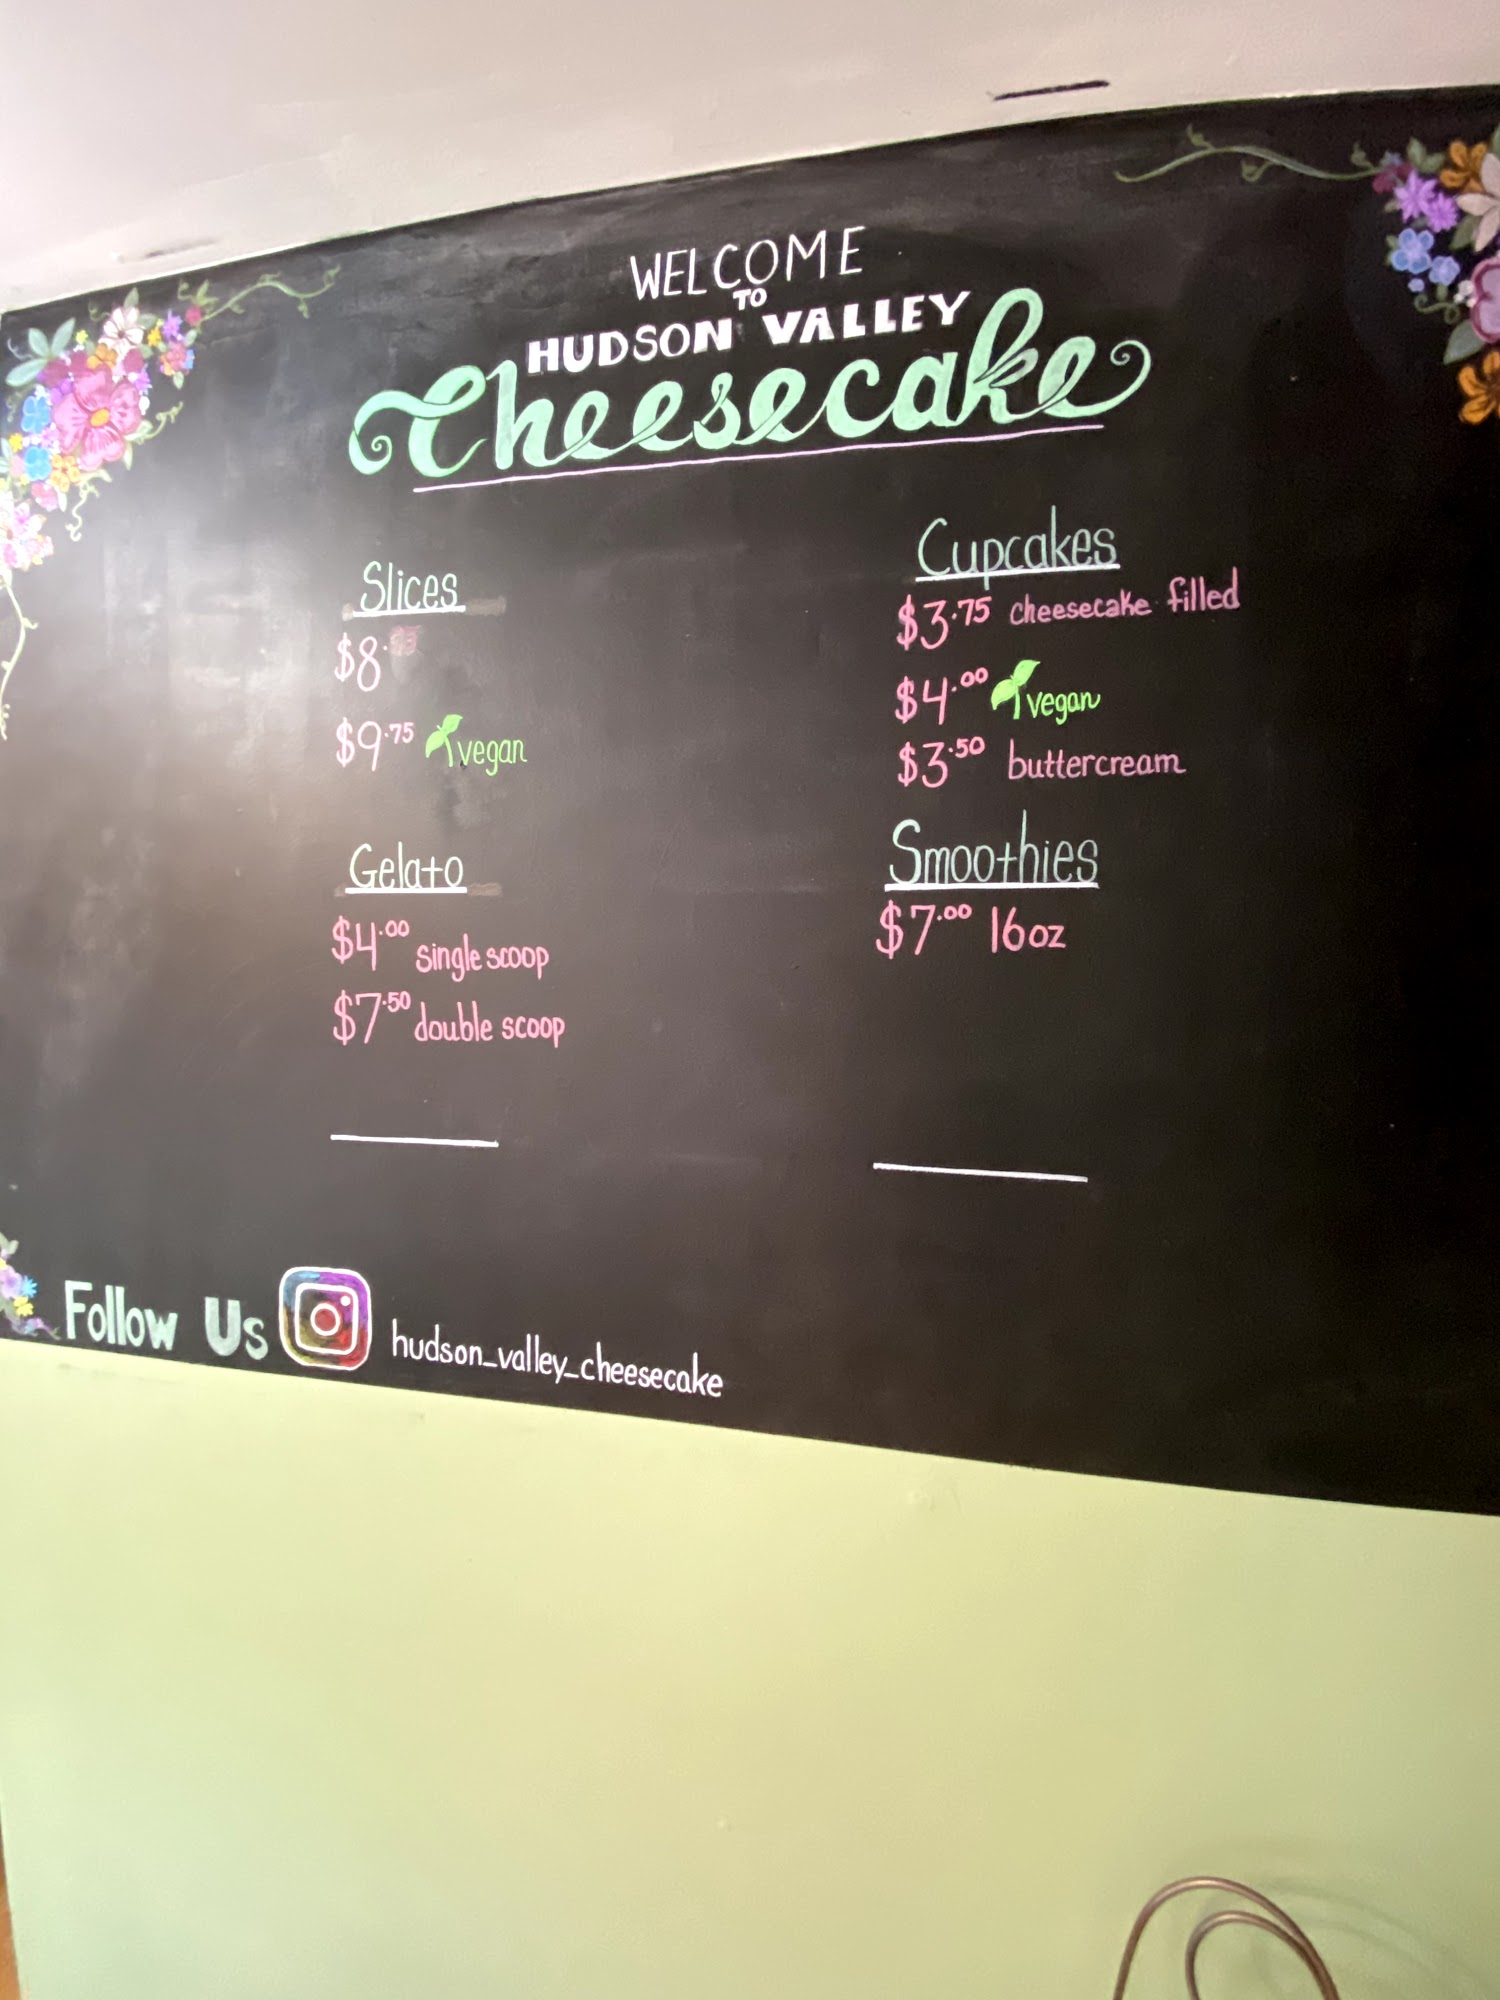 WELCOME
TO
HUDSON VALLEY
Cheesecake
Slices
$8.
$9.75 vegan
Gelato
$4.00 single scoop
$7.50 double scoop
Cupcakes
$3.75 cheesecake filled
$4.00 vegan
$3.50 buttercream
Smoothies
$7.00 16oz
Follow Us hudson_valley_cheesecake